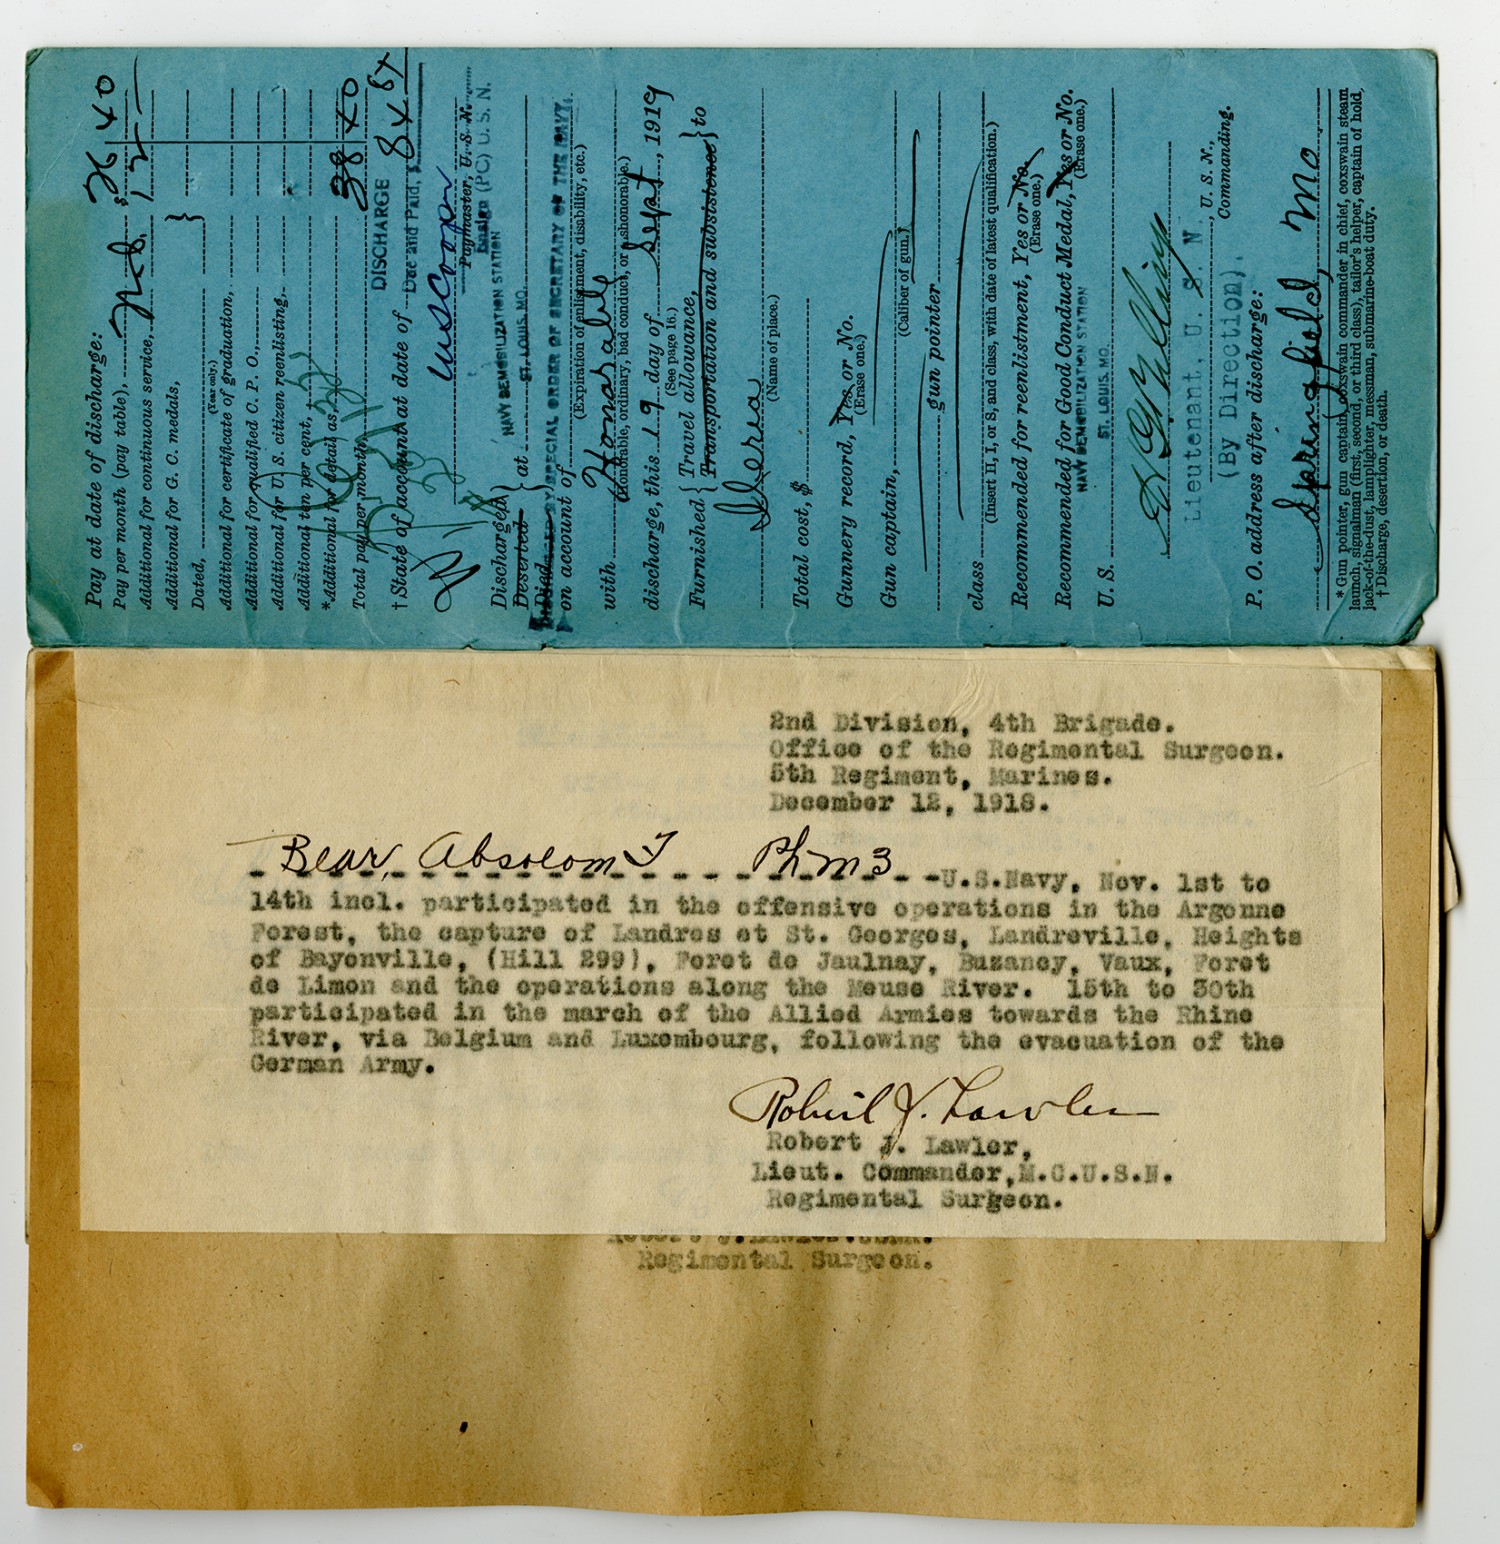 Pay at date of discharge:
Pay per month (pay table), $ 36 40
Additional for continuous service, 12
Additional for G. C. medals,
Dated,
(Year only.)
Additional for certificate of graduation,
Additional for qualified C. P. O.,
Additional for U. S. citizen reenlisting,
Additional ten per cent,
*Additional for detail as
Total pay per month 38 40
DISCHARGE
†State of account at date of Due and Paid, $
Paymaster, U. S. N.
(PC) U. S. N.
NAVY DEMOBILIZATION STATION
ST. LOUIS, MO.
Discharged
Deserted } at
Died
DISCHARGED BY SPECIAL ORDER OF SECRETARY OF THE NAVY.
on account of
(Expiration of enlistment, disability, etc.)
with Honorable
(Honorable, ordinary, bad conduct, or dishonorable.)
discharge, this 19 day of Sept, 1919
(See page 16.)
Furnished { Travel allowance,
Transportation and subsistence } to
(Name of place.)
Total cost, $
Gunnery record, Yes or No.
(Erase one.)
Gun captain,
(Caliber of gun.)
gun pointer
class
(Insert II, I, or S, and class, with date of latest qualification.)
Recommended for reenlistment, Yes or No.
(Erase one.)
Recommended for Good Conduct Medal, Yes or No.
(Erase one.)
NAVY DEMOBILIZATION STATION
ST. LOUIS, MO.
U. S.
Lieutenant, U. S. N.
, U. S. N.,
Commanding.
(By Direction).
P. O. address after discharge:
Springfield, Mo
* Gun pointer, gun captain, coxswain commander in chief, coxswain steam
launch, signalman (first, second, or third class), tailor's helper, captain of hold,
jack-of-the-dust, lamplighter, messman, submarine-boat duty.
† Discharge, desertion, or death.
2nd Division, 4th Brigade.
Office of the Regimental Surgeon.
5th Regiment, Marines.
December 12, 1918.
Bear, Absolom T PhM3 U.S.Navy, Nov. 1st to
14th incl. participated in the offensive operations in the Argonne
Forest, the capture of Landres et St. Georges, Landreville, Heights
of Bayonville, (Hill 299), Foret de Jaulnay, Buzancy, Vaux, Foret
de Limon and the operations along the Meuse River. 15th to 30th
participated in the march of the Allied Armies towards the Rhine
River, via Belgium and Luxembourg, following the evacuation of the
German Army.
Robert J. Lawler
Robert J. Lawler,
Lieut. Commander, M.C.U.S.N.
Regimental Surgeon.
Regimental Surgeon.